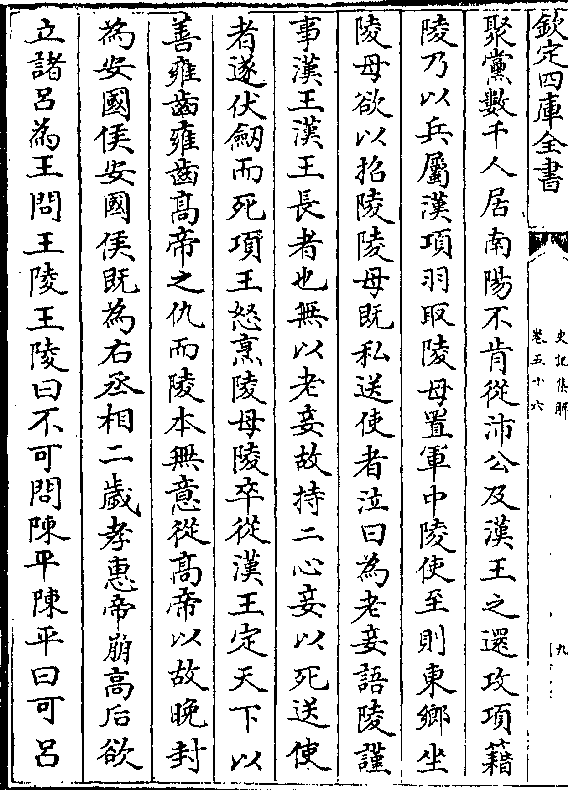 欽定四庫全書
史記集解
卷五十六
九
聚黨數千人居南陽不肯從沛公及漢王之還攻項籍
陵乃以兵屬漢項羽取陵母置軍中陵使至則東鄉坐
陵母欲以招陵陵母既私送使者泣曰為老妾語陵謹
事漢王漢王長者也無以老妾故持二心妾以死送使
者遂伏劒而死項王怒烹陵母陵卒從漢王定天下以
善雍齒雍齒髙帝之仇而陵本無意從髙帝以故晚封
為安國侯安國侯既為右丞相二歲孝惠帝崩高后欲
立諸吕為王問王陵王陵曰不可問陳平陳平曰可吕